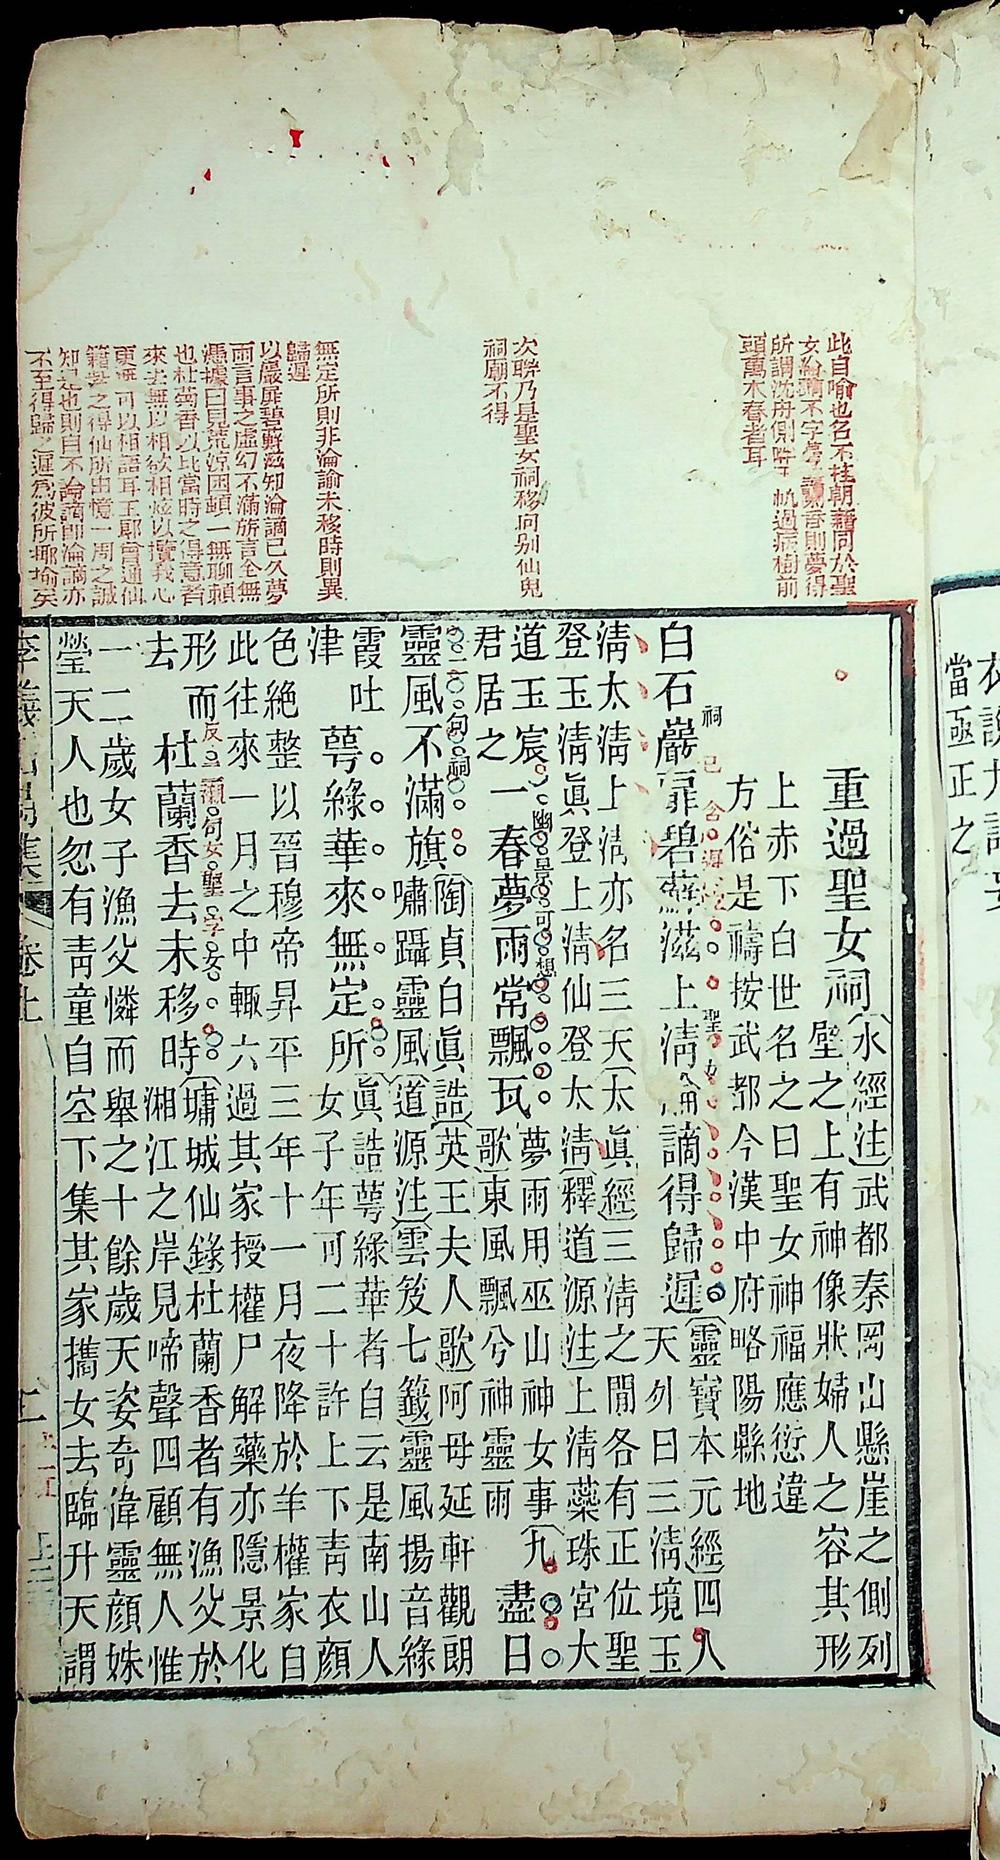 此自喻也名不挂朝籍同於聖
女
所謂沈舟側畔千帆過病樹前
頭萬木春者耳
次聯乃是聖女祠移向别仙鬼
祠廟不得
無定所則非淪謫未移時則異
歸遲
以巖扉碧蘚滋知淪謫已久夢
雨言事之虛幻不滿旂言全無
憑據曰見荒涼困頓一無聊賴
也杜蘭香以比當時之得意者
來去無以相
更可以相語耳玉郎曾通仙
籍
知是也則自不論謫即淪謫亦
不至得歸之遲為彼所揶揄矣
當亟正之
重過聖女祠〔水經注〕武都秦岡山懸崖之側列
壁之上有神像狀婦人之容其形
上赤下白世名之曰聖女神福應愆違
方俗是禱按武都今漢中府略陽縣地
白石巖扉碧蘚滋上清淪謫得歸遲〔靈寶本元經〕四人
天外曰三清境玉
清太清上清亦名三天〔太眞經〕三清之間各有正位聖
登玉清眞登上清仙登太清〔釋道源注〕上清蘂珠宮大
道玉宸
君居之一春夢雨常飄瓦夢雨用巫山神女事〔九
歌〕東風飄兮神靈雨盡日
靈風不滿旗〔陶貞白眞誥〕英王夫人歌〕阿母延軒觀朗
嘯躡靈風〔道源注〕〔雲笈七籤〕靈風揚音綠
霞吐
津萼綠華來無定所〔眞誥〕萼綠華者自云是南山人
女子年可二十許上下靑衣顏
色絶整以晉穆帝昇平三年十一月夜降於羊權家自
此往來一月之中輒六過其家授權尸解藥亦隱景化
形而
去杜蘭香去未移時〔墉城仙錄〕杜蘭香者有漁父於
湘江之岸見啼聲四顧無人惟
一二歲女子漁父憐而舉之十餘歲天姿奇偉靈顏姝
瑩天人也忽有靑童自空下集其家攜女去臨升天謂
卷上